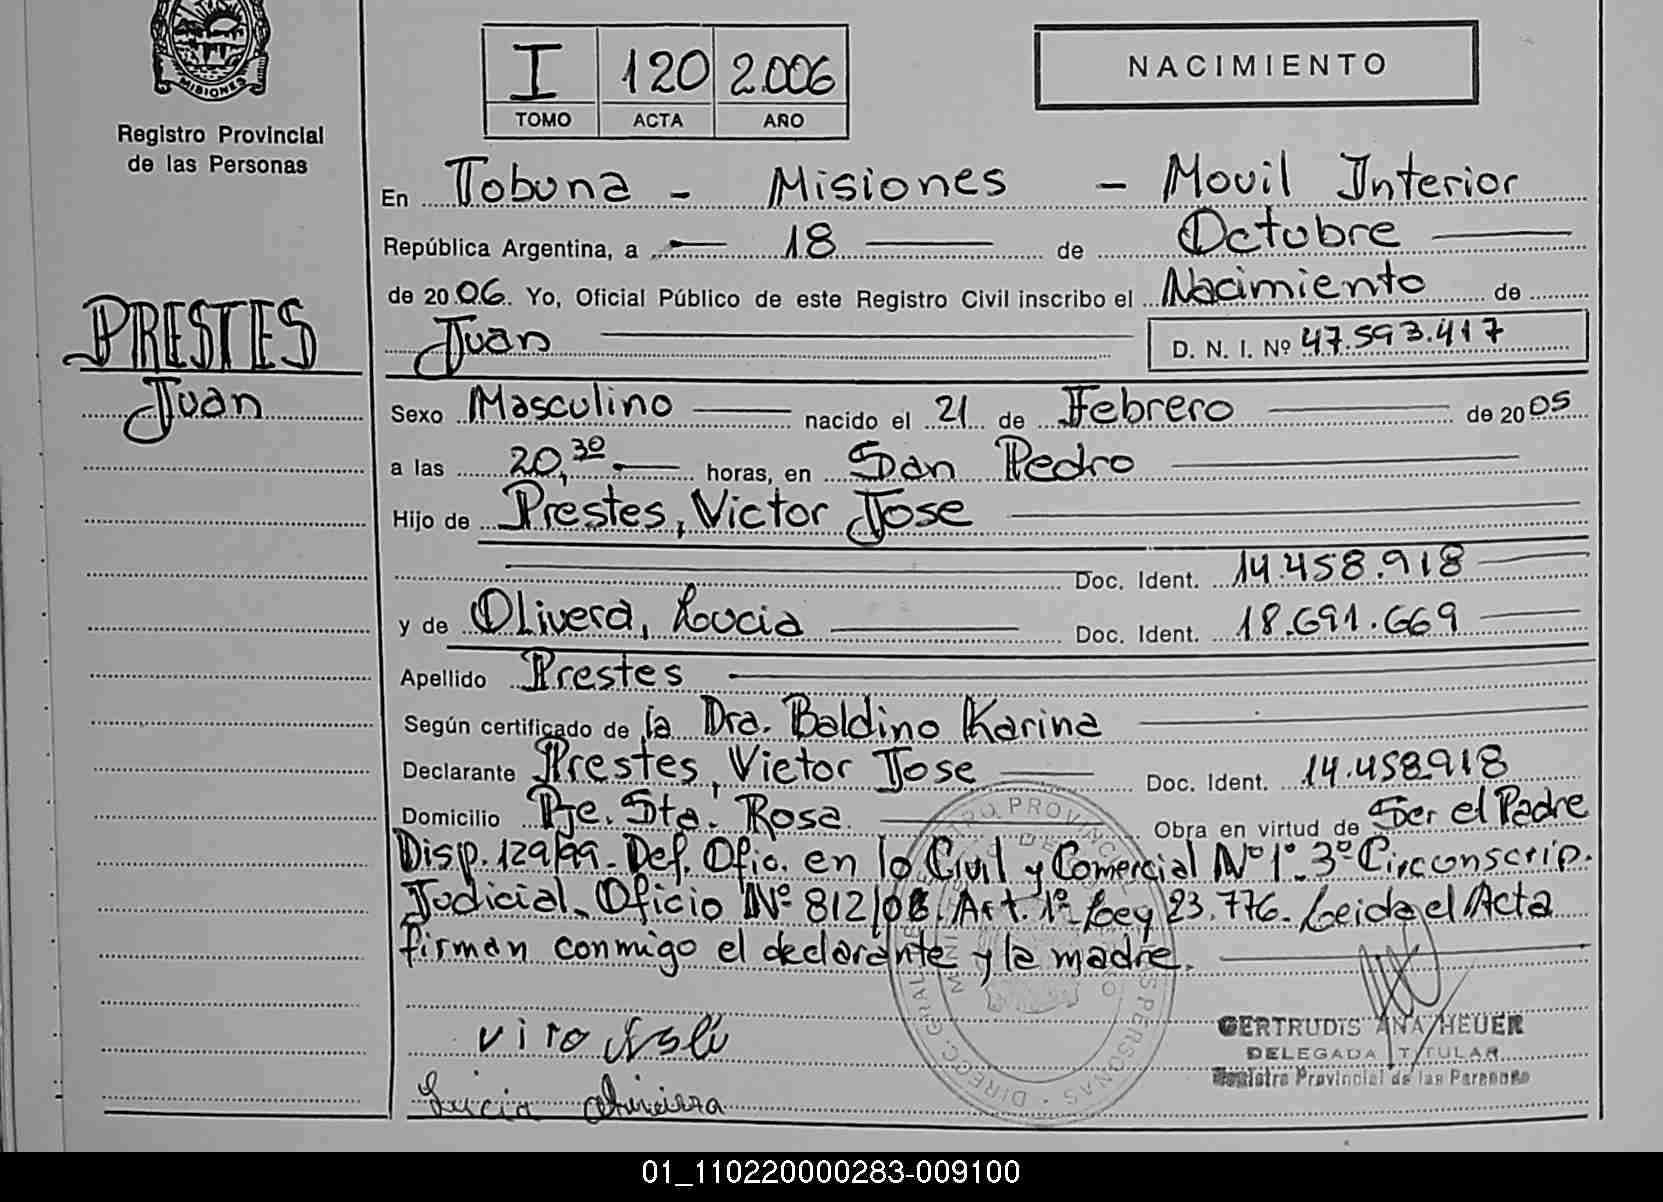 MISIONES
Registro Provincial
de las Personas
I 120 2.006
TOMO ACTA AÑO
NACIMIENTO
PRESTES
Juan
En Tobuna - Misiones - Movil Interior
República Argentina, a 18 de Octubre
de 2006. Yo, Oficial Público de este Registro Civil inscribo el Nacimiento de
Juan D. N. I. Nº 47.593.417
Sexo Masculino nacido el 21 de Febrero de 2005
a las 20,30 horas, en San Pedro
Hijo de Prestes, Victor Jose
Doc. Ident. 14.458.918
y de Olivera, Lucia Doc. Ident. 18.691.669
Apellido Prestes
Según certificado de la Dra. Baldino Karina
Declarante Prestes, Victor Jose Doc. Ident. 14.458918
Domicilio Pje. Sta. Rosa. Obra en virtud de Ser el Padre
Disp. 129/99. Def. Ofic. en lo Civil y Comercial Nº 1º. 3º Circonscrip.
Judicial. Oficio Nº 812/06. Art. 1º Ley 23.776. Leida el Acta
firman conmigo el declarante y la madre.
GERTRUDIS ANA HEUER
DELEGADA TITULAR
Registro Provincial de las Personas
Lucia
01_110220000283-009100